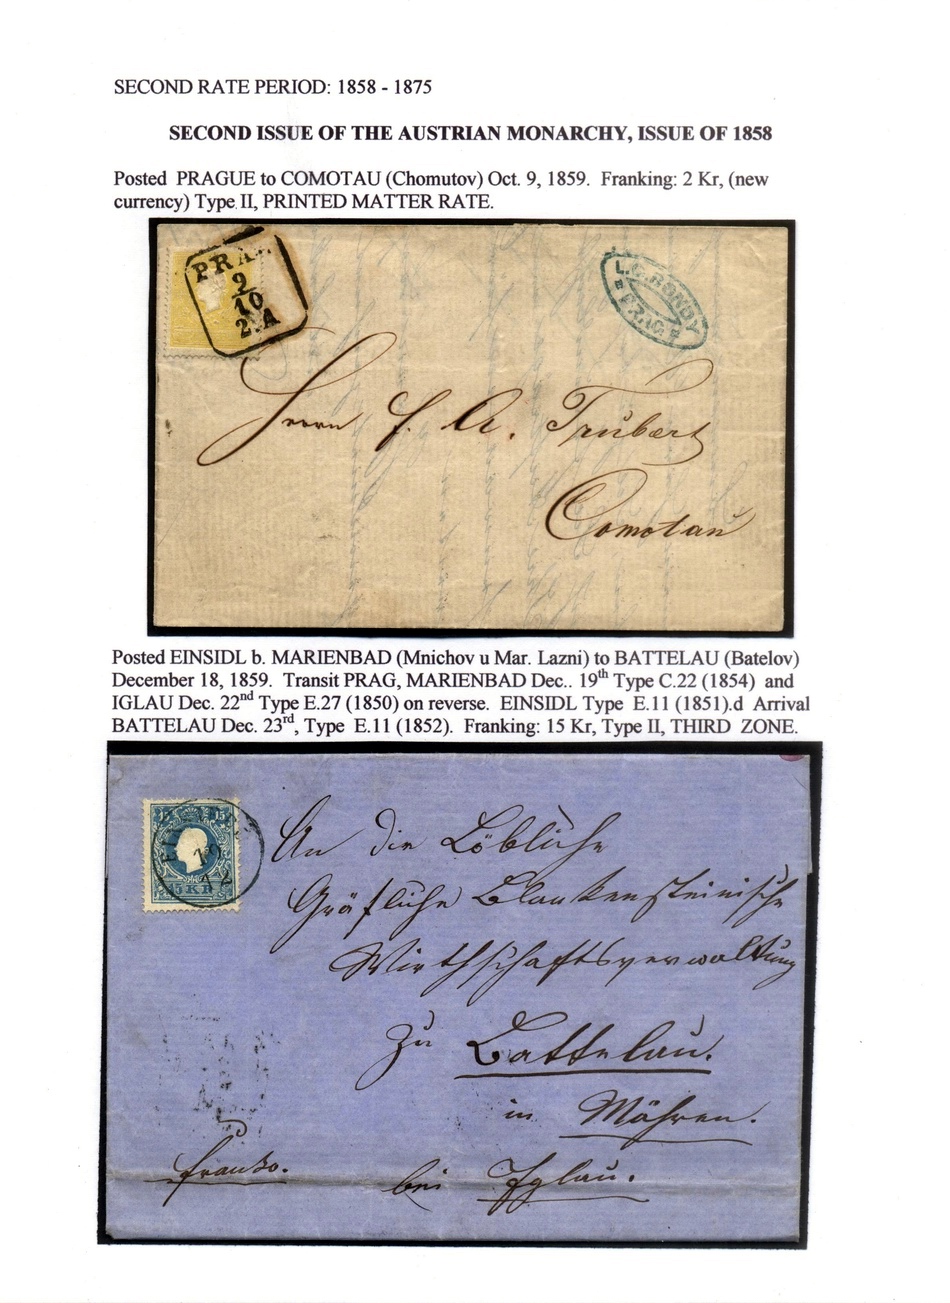 SECOND RATE PERIOD: 1858 - 1875
SECOND ISSUE OF THE AUSTRIAN MONARCHY, ISSUE OF 1858
Posted PRAGUE to COMOTAU (Chomutov) Oct. 9, 1859. Franking: 2 Kr, (new
currency) Type II, PRINTED MATTER RATE.
PRA
9
10
2.A
PRAG
Herrn F. A. Trübert
Comotau
Posted EINSIDL b. MARIENBAD (Mnichov u Mar. Lazni) to BATTELAU (Batelov)
December 18, 1859. Transit PRAG, MARIENBAD Dec.. 19th Type C.22 (1854) and
IGLAU Dec. 22nd Type E.27 (1850) on reverse. EINSIDL Type E.11 (1851).d Arrival
BATTELAU Dec. 23rd, Type E.11 (1852). Franking: 15 Kr, Type II, THIRD ZONE.
15 15
18
12
15 KR
An die Löbliche
Gräfliche Blankensteinische
Wirthschaftsverwaltung
zu Battelau.
in Mähren.
franko.
bei Iglau.